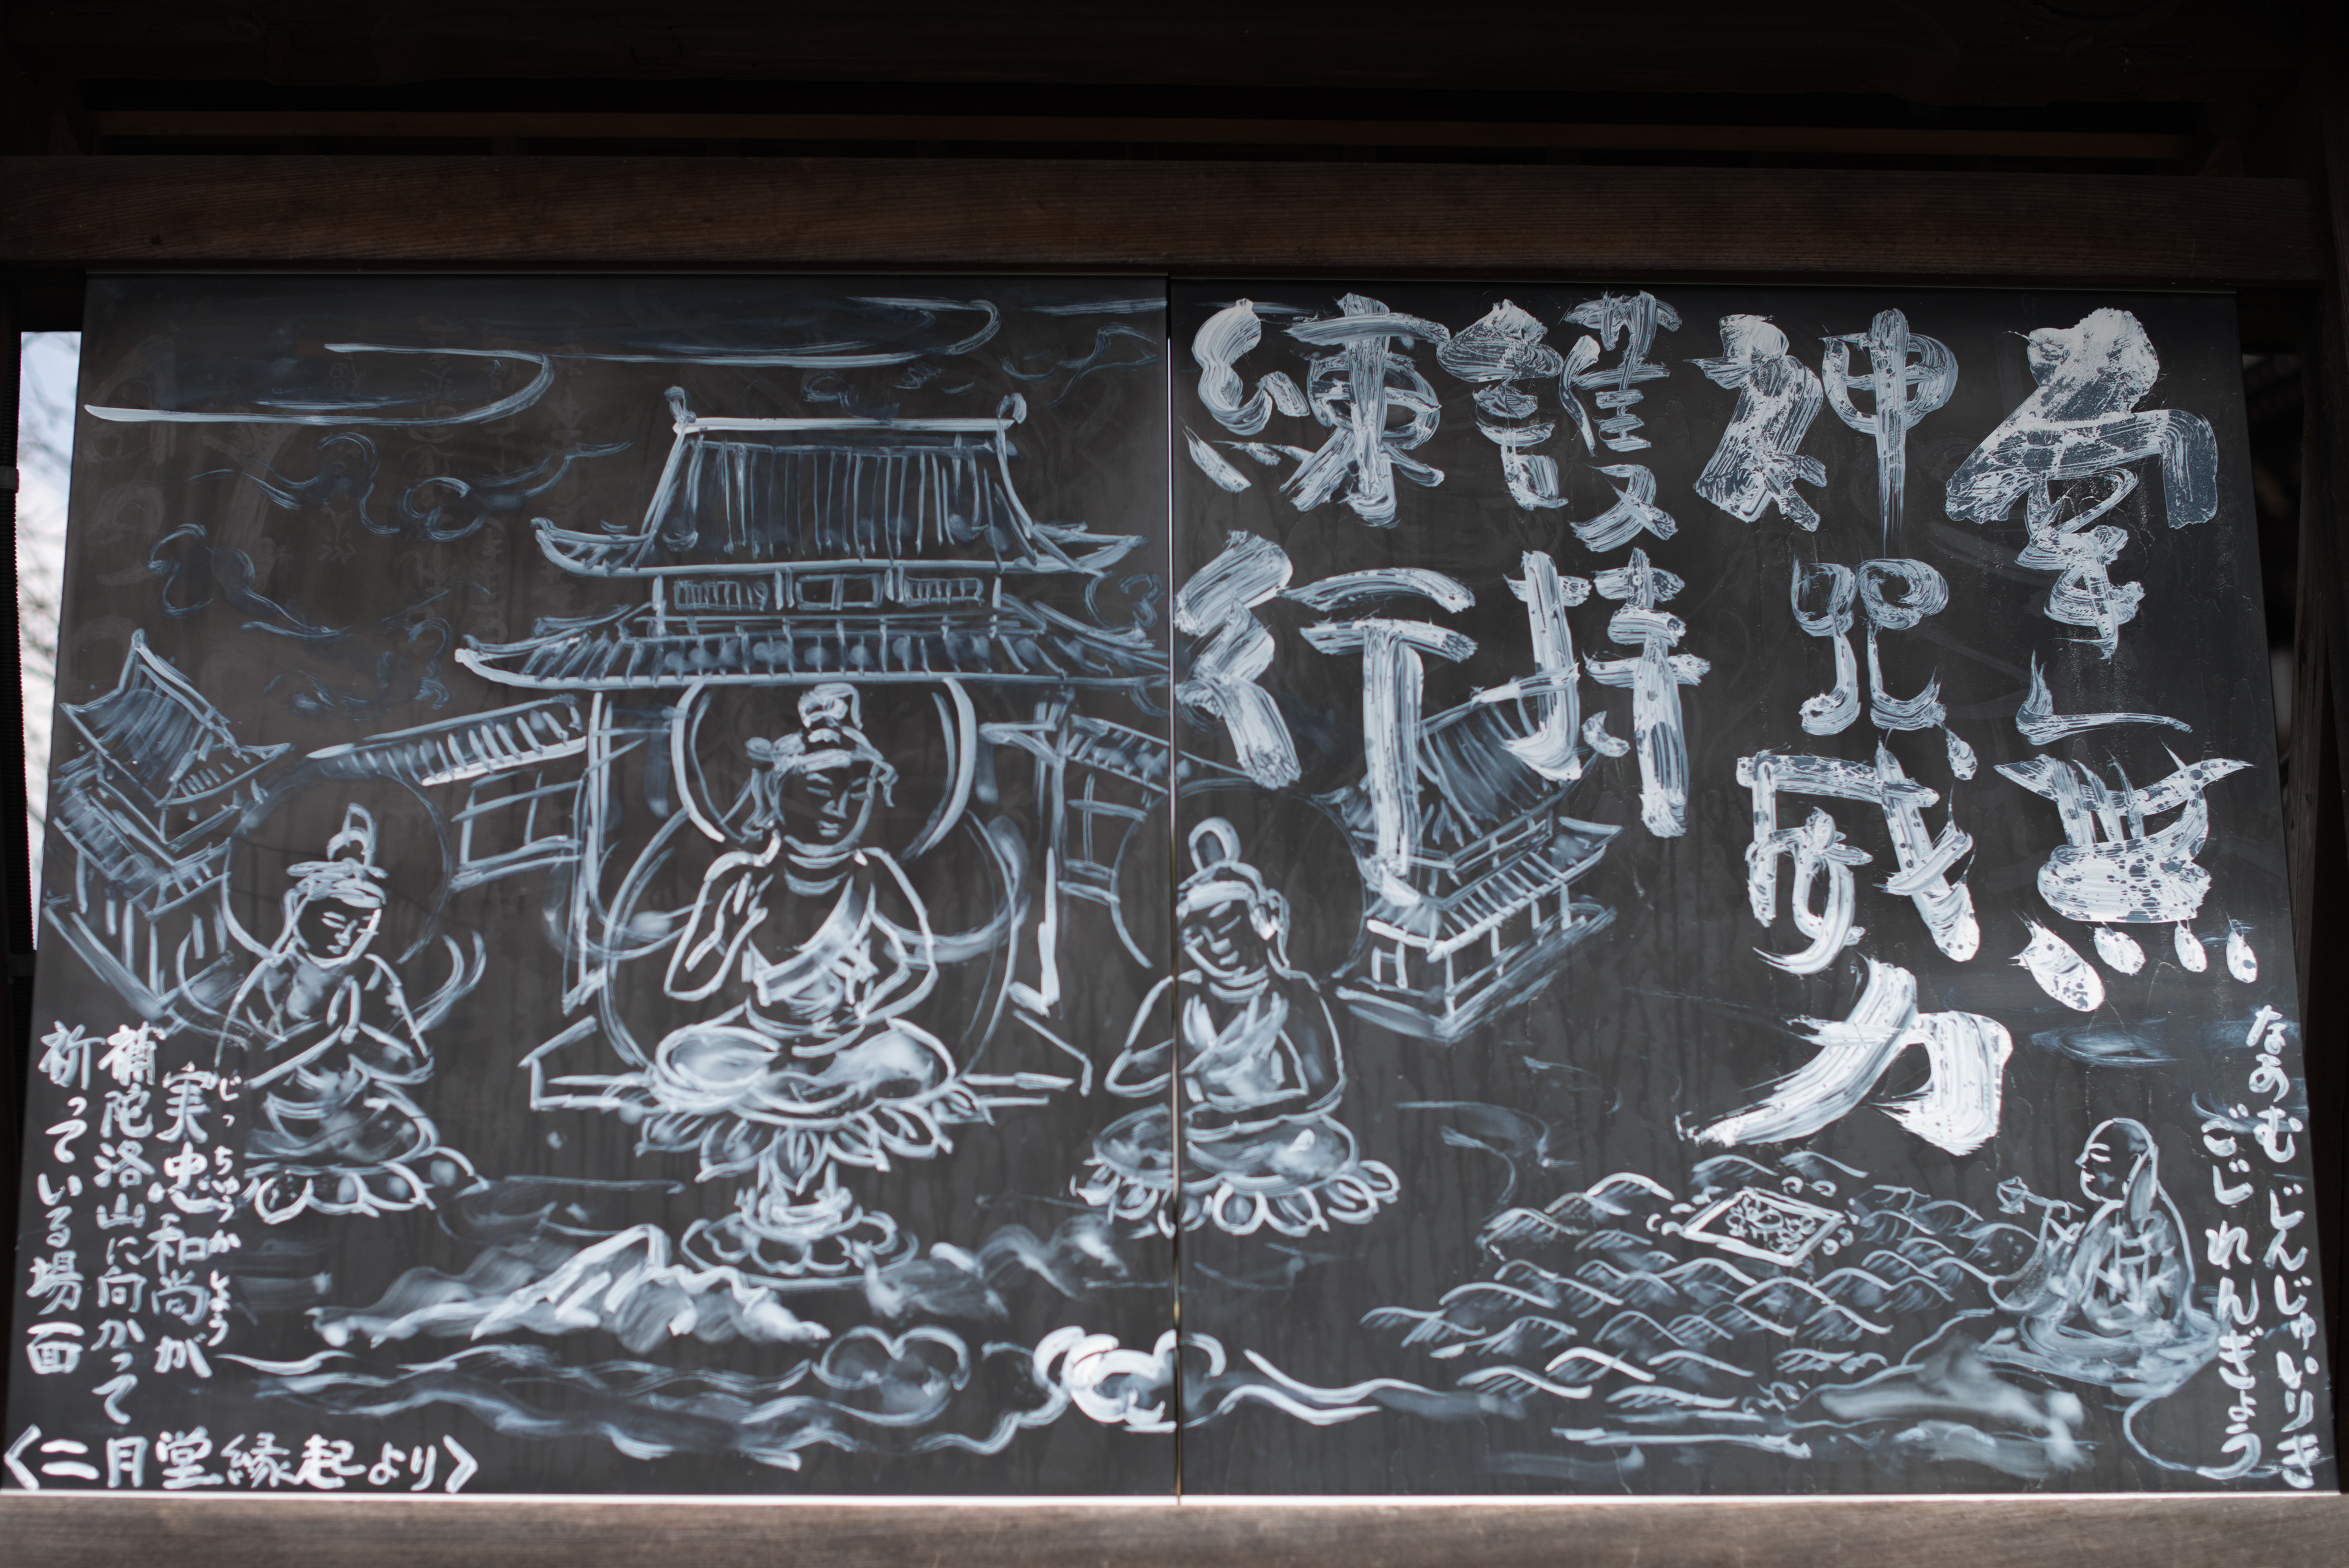 南無
神呪威力
護持
練行
なのむ じんじゅいりき
ごじ れんぎょう
じっちゅうかしょう
実忠和尚が
補陀洛山に向かって
祈っている場面
〈二月堂縁起より〉